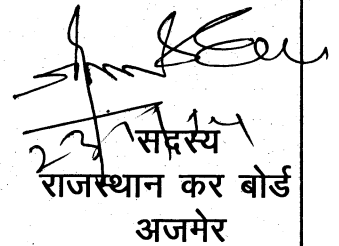 सदस्य
राजस्थान कर बोर्ड
अजमेर